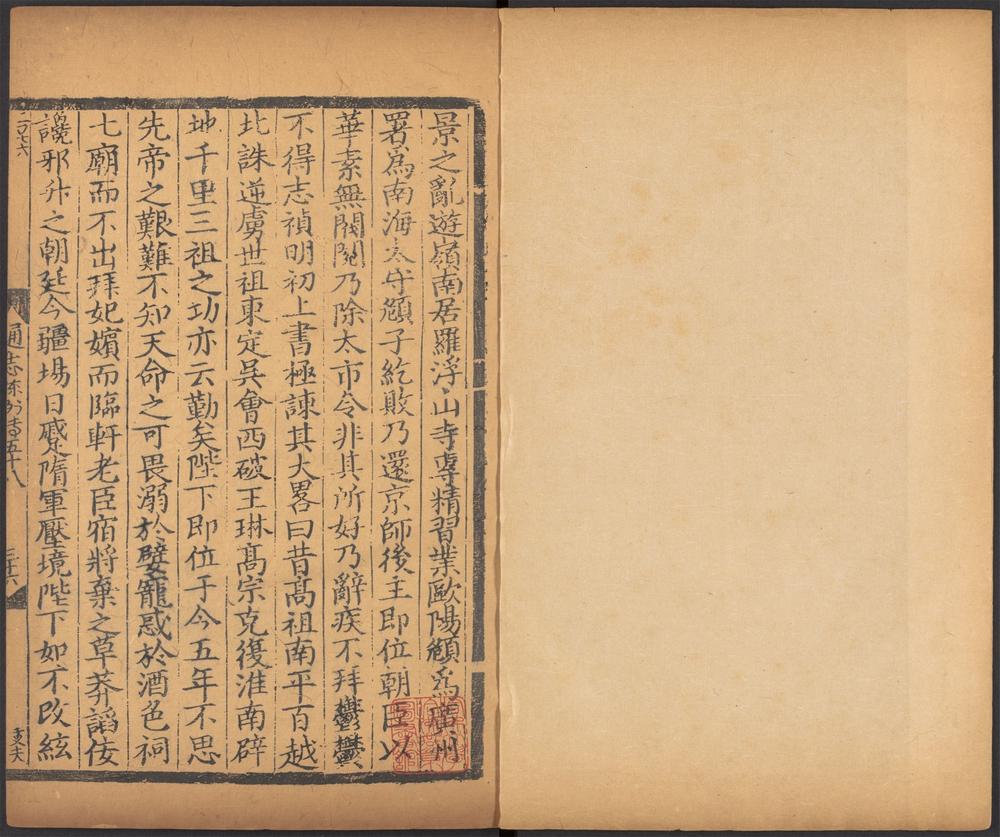 景之亂遊嶺南居羅浮山寺專精習業歐陽頠爲廣州
署爲南海太守頠子紇敗乃還京師後主即位朝臣以
華素無閥閱乃除太市令非其所好乃辭疾不拜鬱鬱
不得志禎明初上書極諫其大畧曰昔髙祖南平百越
北誅逆虜世祖東定吳會西破王琳髙宗克復淮南辟
地千里三祖之功亦云勤矣陛下即位于今五年不思
先帝之艱難不知天命之可畏溺於嬖寵惑於酒色祠
七廟而不出拜妃嬪而臨軒老臣宿將棄之草莽謟佞
讒邪升之朝廷今疆埸日蹙隋軍壓境陛下如不改絃
通志列傳五十八
三十六